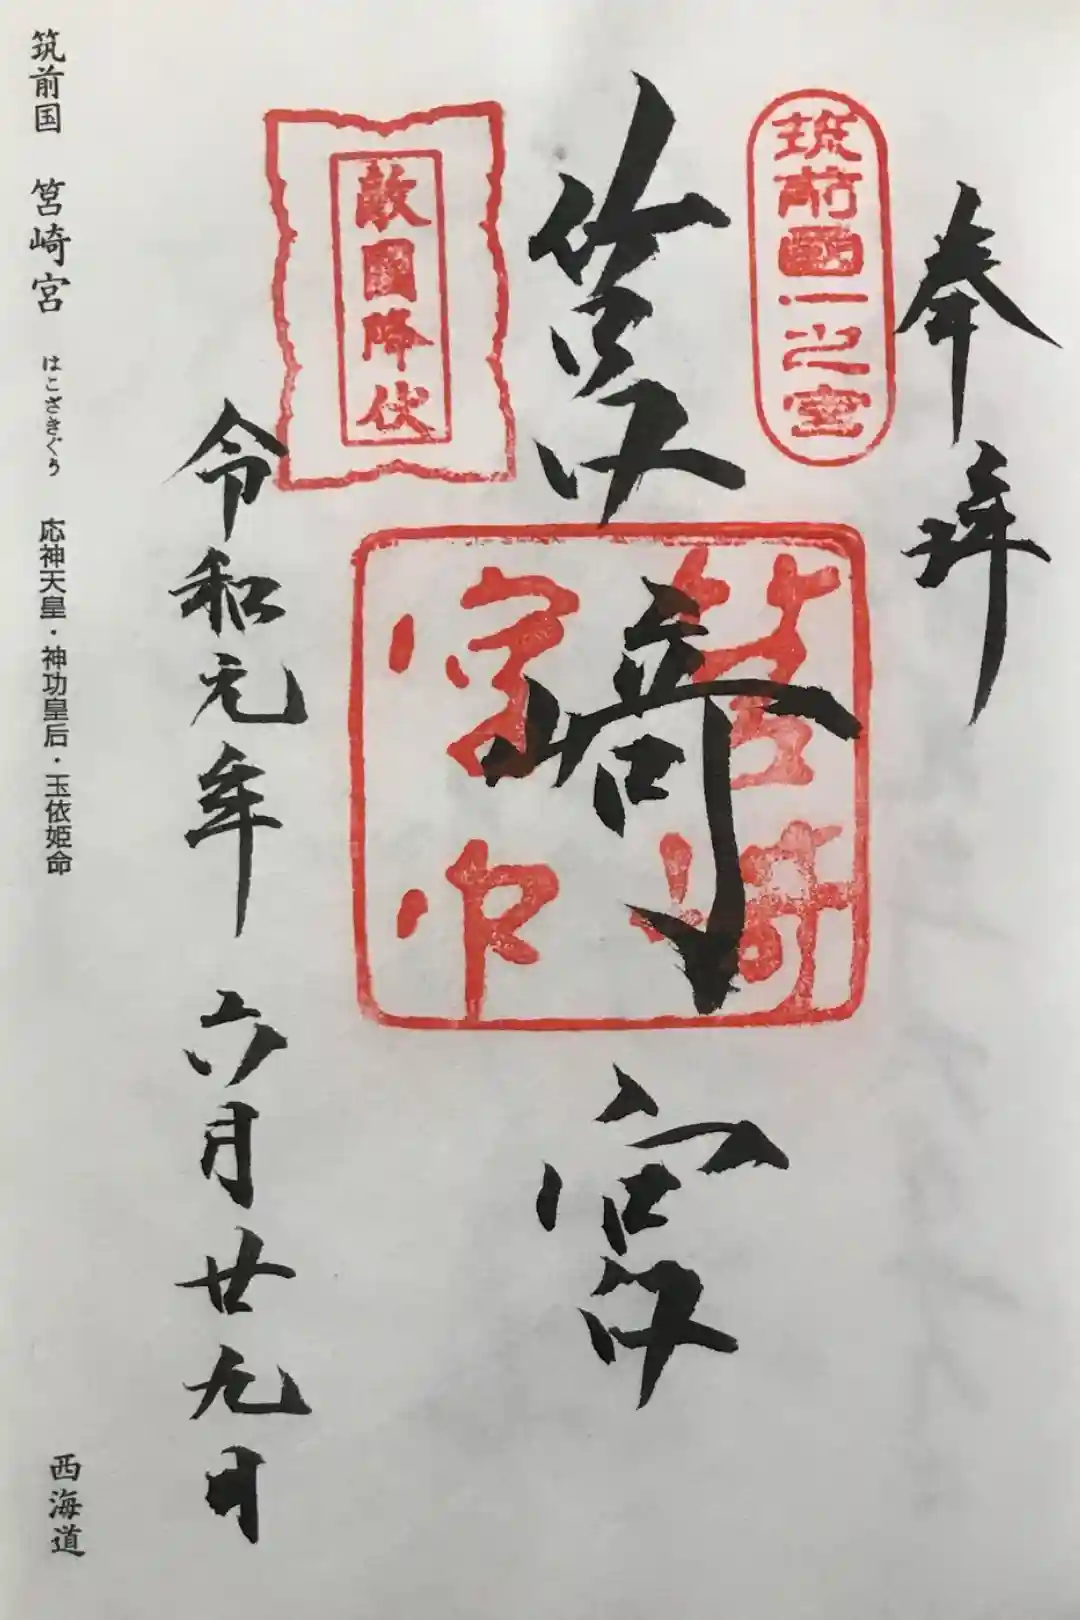 奉拝
筑前國一之宮
筥崎宮
筥崎
宮印
敵國降伏
令和元年 六月廿九日
筑前国 筥崎宮 はこざきぐう 応神天皇・神功皇后・玉依姫命
西海道